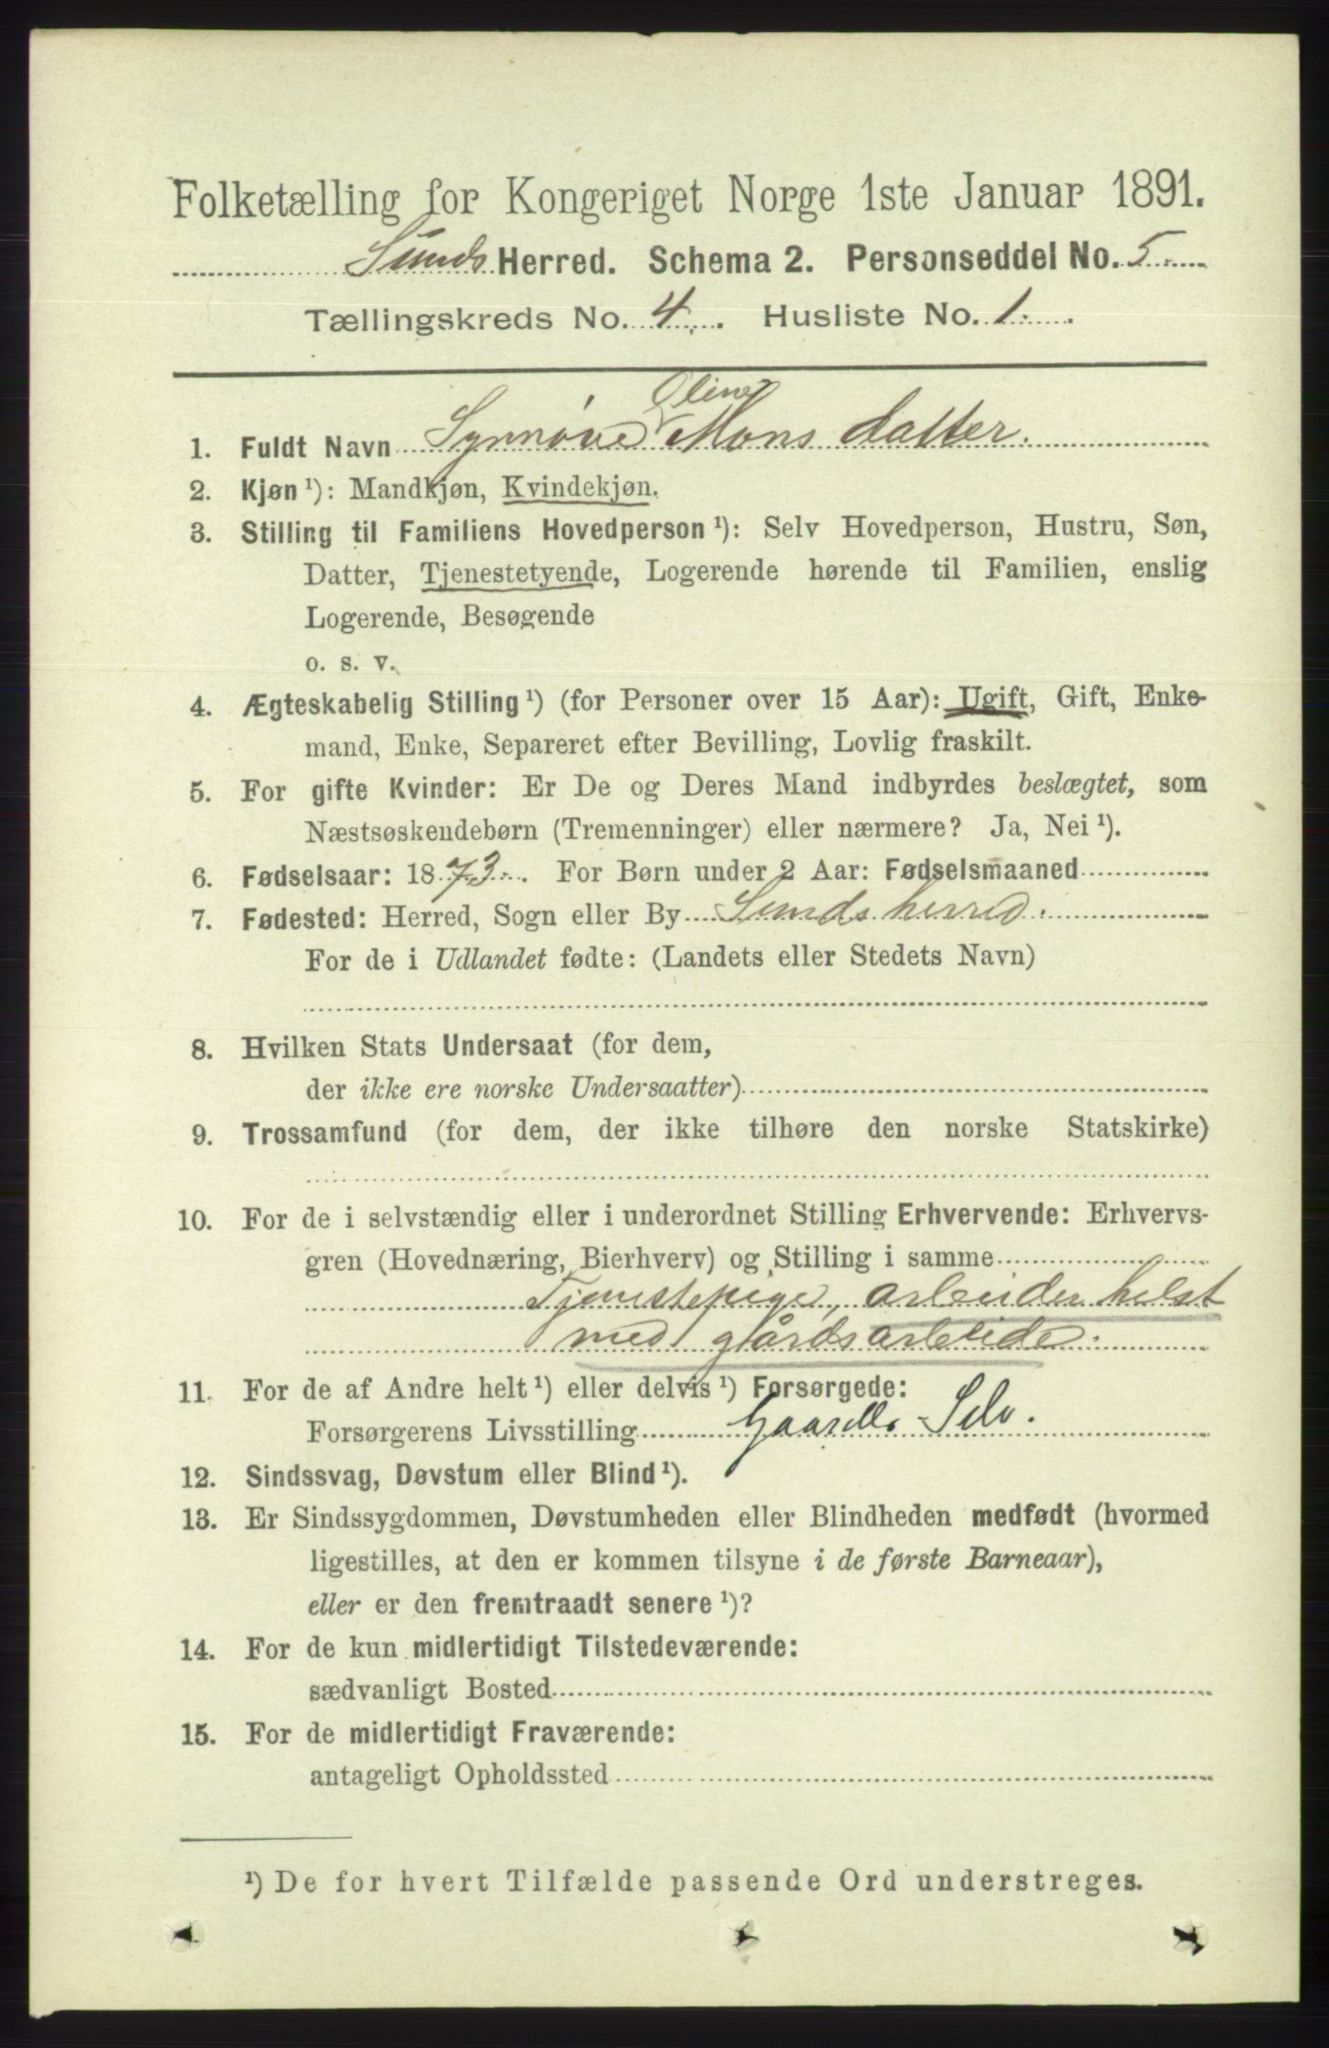 Folketælling for Kongeriget Norge 1ste Januar 1891.
Sunds Herred. Schema 2. Personseddel No. 5
Tællingskreds No. 4. Husliste No. 1.
Oline
1. Fuldt Navn Synnøve Mons datter.
2. Kjøn ¹): Mandkjøn, Kvindekjøn.
3. Stilling til Familiens Hovedperson ¹): Selv Hovedperson, Hustru, Søn,
Datter, Tjenestetyende, Logerende hørende til Familien, enslig
Logerende, Besøgende
o. s. v.
4. Ægteskabelig Stilling ¹) (for Personer over 15 Aar): Ugift, Gift, Enke-
mand, Enke, Separeret efter Bevilling, Lovlig fraskilt.
5. For gifte Kvinder: Er De og Deres Mand indbyrdes beslægtet, som
Næstsøskendebørn (Tremenninger) eller nærmere? Ja, Nei ¹).
6. Fødselsaar: 1873. For Børn under 2 Aar: Fødselsmaaned
7. Fødested: Herred, Sogn eller By Sunds herred.
For de i Udlandet fødte: (Landets eller Stedets Navn)
8. Hvilken Stats Undersaat (for dem,
der ikke ere norske Undersaatter)
9. Trossamfund (for dem, der ikke tilhøre den norske Statskirke)
10. For de i selvstændig eller i underordnet Stilling Erhvervende: Erhvervs-
gren (Hovednæring, Bierhverv) og Stilling i samme
Tjenestepige, arbeider helst
med gårdsarbeide.
11. For de af Andre helt ¹) eller delvis ¹) Forsørgede:
Forsørgerens Livsstilling Selv.
12. Sindssvag, Døvstum eller Blind ¹).
13. Er Sindssygdommen, Døvstumheden eller Blindheden medfødt (hvormed
ligestilles, at den er kommen tilsyne i de første Barneaar),
eller er den fremtraadt senere ¹)?
14. For de kun midlertidigt Tilstedeværende:
sædvanligt Bosted
15. For de midlertidigt Fraværende:
antageligt Opholdssted
¹) De for hvert Tilfælde passende Ord understreges.